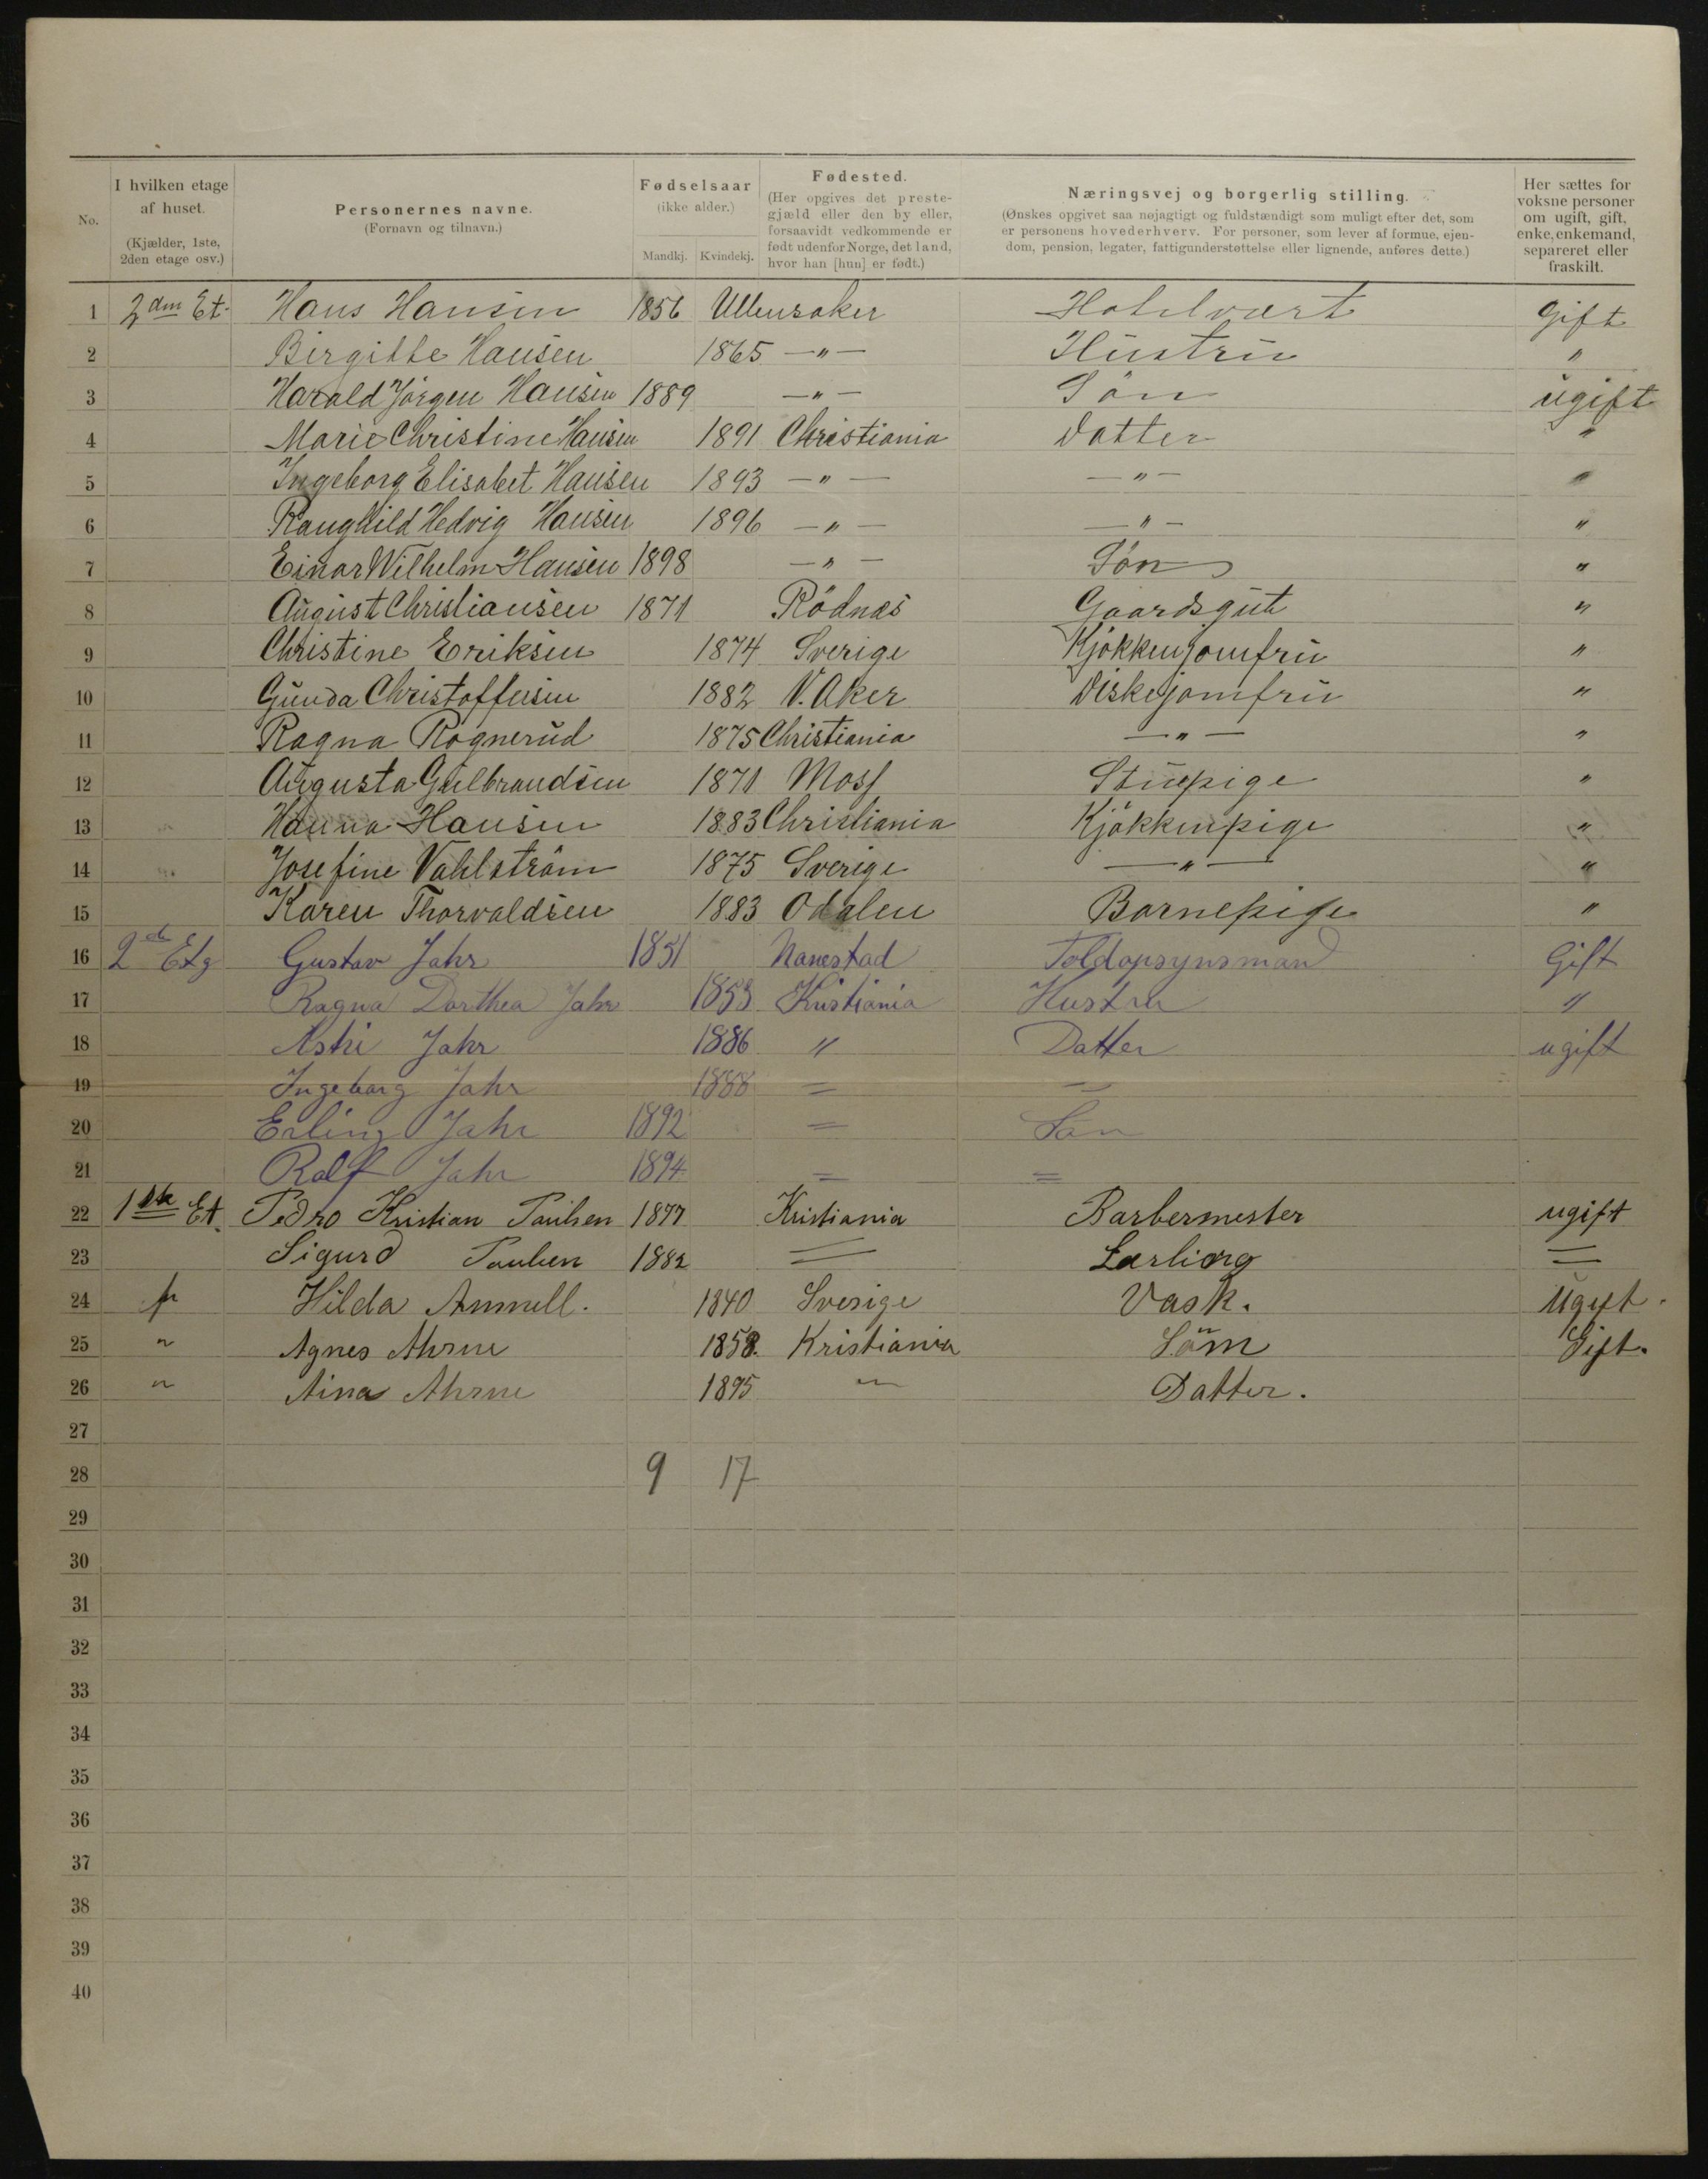 No.
I hvilken etage af huset. (Kjælder, 1ste, 2den etage osv.)
Personernes navne. (Fornavn og tilnavn.)
Fødselsaar (ikke alder.) Mandkj. Kvindekj.
Fødested. (Her opgives det prestegjæld eller den by eller, forsaavidt vedkommende er født udenfor Norge, det land, hvor han [hun] er født.)
Næringsvej og borgerlig stilling. (Ønskes opgivet saa nøjagtigt og fuldstændigt som muligt efter det, som er personens hovederhverv. For personer, som lever af formue, ejendom, pension, legater, fattigunderstøttelse eller lignende, anføres dette.)
Her sættes for voksne personer om ugift, gift, enke, enkemand, separeret eller fraskilt.
1 2den Et. Hans Hansen 1856 Ullensaker Hotelvært Gift
2 Birgitte Hansen 1865 —〃— Hustru 〃
3 Harald Jörgen Hansen 1889 —〃— Sön ugift
4 Marie Christine Hansen 1891 Christiania Datter 〃
5 Ingeborg Elisabet Hansen 1893 —〃— —〃— 〃
6 Ranghild Hedvig Hansen 1896 —〃— —〃— 〃
7 Einar Wilhelm Hansen 1898 —〃— Sön 〃
8 August Christiansen 1871 Rödnæs Gaardsgut 〃
9 Christine Eriksen 1874 Sverige Kjökkenjomfru 〃
10 Gunda Christoffersen 1882 V. Aker Diskejomfru 〃
11 Ragna Rognerud 1875 Christiania —〃— 〃
12 Augusta Gulbrandsen 1871 Moss Stuepige 〃
13 Hanna Hansen 1883 Christiania Kjökkenpige 〃
14 Josefine Vahlström 1875 Sverige —〃— 〃
15 Karen Thorvaldsen 1883 Odalen Barnepige 〃
16 2de Etg Gustav Jahr 1851 Nanestad Toldopsynsmand Gift
17 Ragna Dorthea Jahr 1853 Kristiania Hustru 〃
18 Astri Jahr 1886 〃 Datter ugift
19 Ingeborg Jahr 1888 = =
20 Erling Jahr 1892 = Søn
21 Rolf Jahr 1894 = =
22 1ste Et. Pedro Kristian Paulsen 1877 Kristiania Barbermester ugift
23 Sigurd Paulsen 1882 = Lærling =
24 〃 Hilda 1840 Sverige Vask. Ugift.
25 〃 Agnes Ahrne 1858. Kristiania Söm Gift.
26 〃 Aina Ahrne 1895 〃 Datter.
27
28 9 17
29
30
31
32
33
34
35
36
37
38
39
40